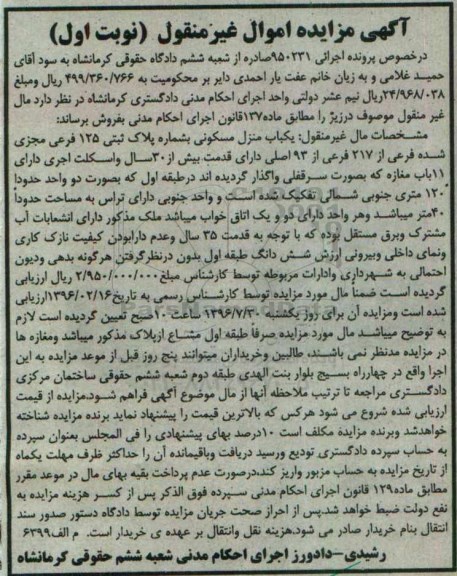 آگهی مزایده اموال غیرمنقول (نوبت اول)
درخصوص پرونده اجرائی ۹۵۰۲۳۱صادره از شعبه ششم دادگاه حقوقی کرمانشاه به سود آقای
حمید غلامی و به زیان خانم عفت یار احمدی دایر بر محکومیت به ۴۹۹/۳۶۰/۷۶۶ ریال ومبلغ
۲۴/۹۶۸/۰۳۸ریال نیم عشر دولتی واحد اجرای احکام مدنی دادگستری کرمانشاه در نظر دارد مال
غیر منقول موصوف درزیر را مطابق ماده۱۳۷قانون اجرای احکام مدنی بفروش برساند:
مشخصات مال غیرمنقول: یکباب منزل مسکونی بشماره پلاک ثبتی ۱۲۵ فرعی مجزی
شده فرعی از ۲۱۷ فرعی از ۹۳ اصلی دارای قدمت بیش از۳۰سال واسکلت اجری دارای
۱۱باب مغازه که بصورت سرقفلی واگذار گردیده اند درطبقه اول که بصورت دو واحد حدودا
۱۲۰ متری جنوبی شمالی تفکیک شده است و واحد جنوبی دارای تراس به مساحت حدوداً
۴۰متر میباشد وهر واحد دارای دو و یک اتاق خواب میباشد ملک مذکور دارای انشعابات آب
مشترک وبرق مستقل بوده که با توجه به قدمت ۳۵ سال وعدم دارابودن کیفیت نازک کاری
ونمای داخلی وبیرونی ارزش شش دانگ طبقه اول بدون درنظرگرفتن هرگونه بدهی ودیون
احتمالی به شهرداری وادارات مربوطه توسط کارشناس مبلغ۲/۹۵۰/۰۰۰/۰۰۰ ریال ارزیابی
گردیده است ضمناً مال مورد مزایده توسط کارشناس رسمی به تاریخ۱۳۹۶/۰۲/۱۶ارزیابی
شده است ومزایده آن برای روز یکشنبه ۱۳۹۶/۷/۳۰ ساعت ۱۰صبح تعیین گردیده است لازم
به توضیح میباشد مال مورد مزایده صرفاً طبقه اول مشاع ازپلاک مذکور میباشد ومغازه ها
در مزایده مدنظر نمی باشند. طالبین وخریداران میتوانند پنج روز قبل از موعد مزایده به این
اجرا واقع در چهارراه بسیج بلوار بنت الهدی طبقه دوم شعبه ششم حقوقی ساختمان مرکزی
دادگستری مراجعه تا ترتیب ملاحظه آنها از مال موضوع آگهی فراهم شود.مزایده از قیمت
ارزیابی شده شروع می شود هرکس که بالاترین قیمت را پیشنهاد نماید برنده مزایده شناخته
خواهدشد وبرنده مزایده مکلف است ۱۰درصد بهای پیشنهادی را فی المجلس بعنوان سپرده
به حساب سپرده دادگستری تودیع ورسید دریافت وباقیمانده آن را حداکثر ظرف مهلت یکماه
از تاریخ مزایده به حساب مزبور واریز کند،درصورت عدم پرداخت بقیه بهای مال در موعد مقرر
مطابق ماده۱۲۹ قانون اجرای احکام مدنی سپرده فوق الذکر پس از کسر هزینه مزایده به
نفع دولت ضبط خواهد شد.پس از احراز صحت جریان مزایده توسط دادگاه دستور صدور سند
انتقال بنام خریدار صادر می شود.هزینه نقل وانتقال بر عهده ی خریدار است. م الف۶۳۹۹
رشیدی-دادورز اجرای احکام مدنی شعبه ششم حقوقی کرمانشاه